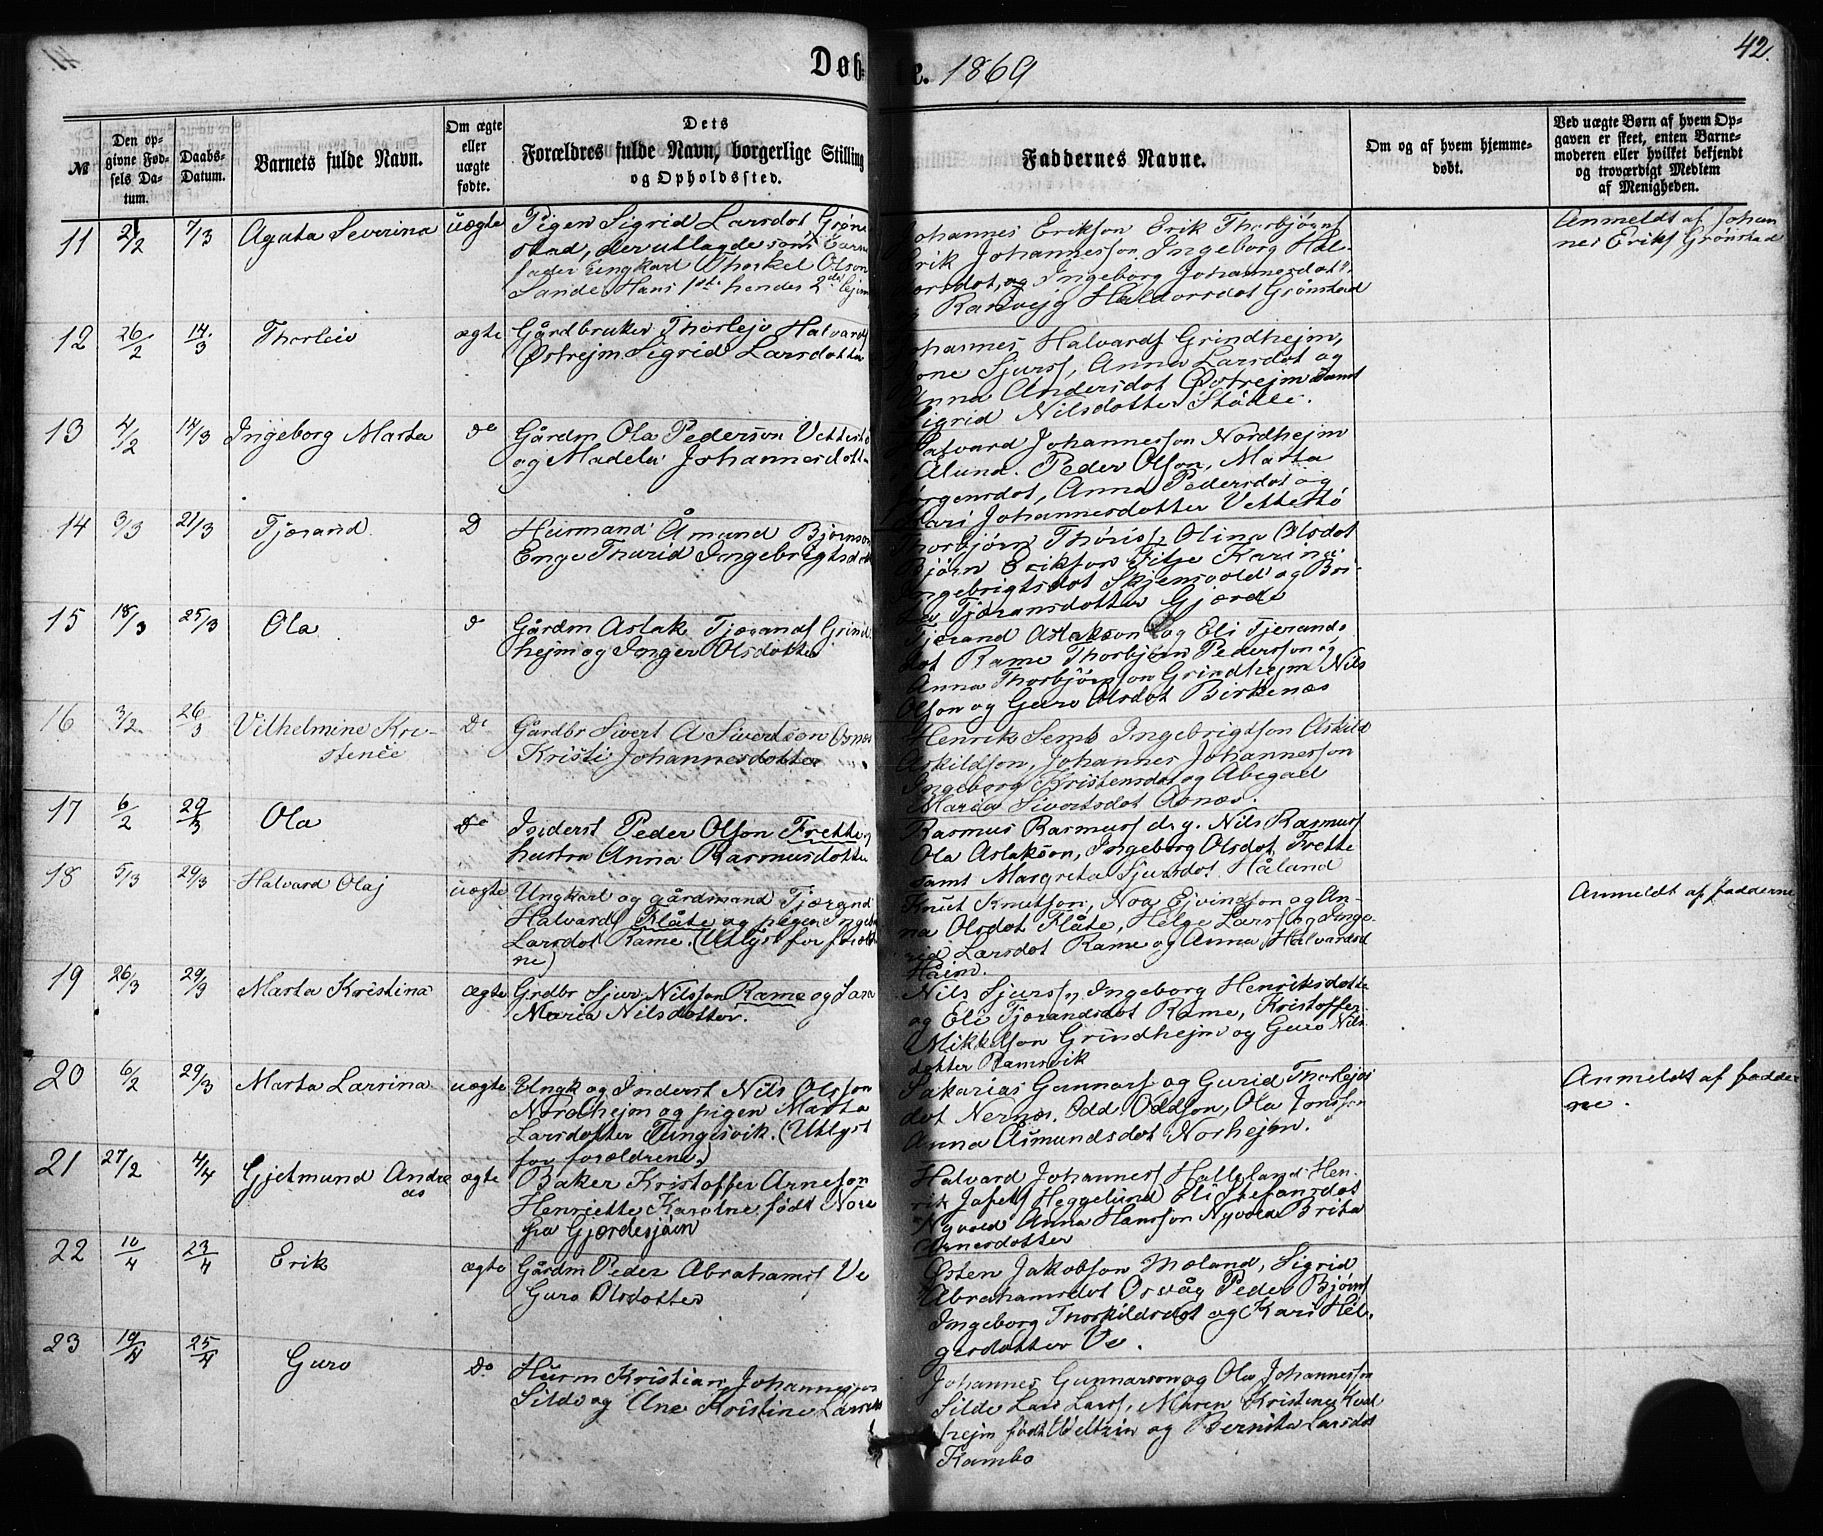 Døb-
e. 1869
42.
№
Den op-
givne Fød-
sels Da-
tum.
Daabs-
Datum.
Barnets fulde Navn.
Om ægte
eller
uægte
fødte.
Dets
Forældres fulde Navn, borgerlige Stilling
og Opholdssted.
Faddernes Navne.
Om og af hvem hjemme-
døbt.
Ved uægte Børn af hvem Op-
gaven er skeet, enten Barne-
moderen eller hvilket bekjendt
og troværdigt Medlem
af Menigheden.
11 2/2 7/3 Agata Severina uægte
Pigen Sigrid Larsdot Grøn-
stad, der utlagde som Barne
fader Ungkarl Thorkel Olson
Sande. Hans 1ste hendes 2de lejem
Johannes Erikson Erik Thorbjøns
Erik Johannesson Ingeborg Hal-
vorsdot, og Ingeborg Johannesdot
Ranvejg Haldorsdot Grønstad
Anmeldt af Johan
nes Eriks Grønstad
12 26/2 14/3 Thorleiv ægte
Gårdbruker Thorlejv Halvards
Østrejm Sigrid Larsdotter
Johannes Halvards Grindhejm,
one Sjurss, Anna Larsdot og
Anna Andersdot Østrejm samt
Sigrid Nilsdotter Stødle.
13 4/2 14/3 Ingeborg Marta do
Gårdm Ola Pederson Vettestø
og Madele Johannesdotte
Halvard Johannesson Nordhejm
Ålund. Peder Olson, Marta
Jørgensdot, Anna Pedersdot og
Kari Johannesdotter Vettestø
14 3/3 21/3 Tjørand D
Husmand Åmund Bjørnson
Enge Thurid Ingebrigtsdot
Thorbjørn Thoriss, Olina Olsdot
Bjørn Erikson Fitje Karina
Ingebrigtsdot Skjensvold og Bri-
ta Tjøransdotter Gjærde
15 18/3 25/3 Ola d
Gårdm Aslak Tjørands Grind
hejm og Inger Olsdotter
Tjørand Aslakson og Eli Tjerands
dot Rame Thorbjørn Pedersson og
Anna Thorbjørnson Grindhejm Nils
Olson og Guro Olsdot Birkenæs
16 3/2 26/3 Vilhelmine Kri-
stence Do
Gårdbr Sivert A Sivertson Osnes
Kristi Johannesdotter
Henrik Semb Ingebrigtson Askild
Askildson, Johannes Johannesson
Ingeborg Kristensdot og Abegael
Maria Sivertsdot Osnæs.
17 6/2 29/3 Ola Do
Inderst Peder Olson Frette og
hustra Anna Rasmusdotter
Rasmus Rasmuss d. y. Nils Rasmuss
Ola Aslakson, Ingeborg Olsdot Frette
samt Margreta Sjursdot Håland
18 5/3 29/3 Halvard Olaj uægte
Ungkarl og gårdmand Tjærand
Halvards Flåte og pigen Ingeb
Larsdot Rame. (Utlyst for foreldre
ne)
Knut Knutson, Noa Ejvindson og An-
na Olsdot Flåte, Helge Larss og Inge-
rid Larsdot Rame og Anna Halvardsd
Håim.
Anmeldt af fadderne
19 26/3 29/3 Marta Kristina ægte
Grdbr Sjur Nilsson Rame og Sara
Maria Nilsdotter.
Nils Sjurss, Ingeborg Henriksdotte
og Eli Tjørandsdot Rame, Kristoffer
Mikkelson Grindhejm og Guro Nils
dotter Ramsvik
20 6/2 29/3 Marta Larsina uægte
Ungk og Inderst Nils Olsson
Nordhejm og pigen Marta
Larsdotter Tungesvik. (Utlyst
for forældrene)
Sakarias Gunnars og Gurid Thorlejvs
dot Nernæs. Odd Oddson, Ola Jonsson
Anna Åsmundsdot Norhejm.
Anmeldt af fadder
ne.
21 27/2 4/4 Gjetmund Andre
as ægte
Baker Kristoffer Arneson
Henriette Karolne, født Nore
fra Gjerdesjøin
Halvard Johanness Halleland Hen-
rik Jafets Heggelund Eli Stefansdot
Nyvold Anna Hansson Nyvold Brita
Arnesdotter
22 10/4 23/4 Erik ægte
Gårdm Peder Abrahams Ve
Guro Olsdotter
Østen Jakobson Moland, Sigrid
Abrahamsdot Orsvåg Peder Bjørns
Ingeborg Thorkildsdot og Kari Hel-
gesdotter Ve.
23 19/4 25/4 Guro Do
Husm Kristian Johannesson
Silde og Ane Kristine Larsd
Johannes Gunnarson og Ola Johannesson
Silde Lars Larss, Maren Kristine Kval
hejm født Veltzin og Bernita Larsdot
Kambo